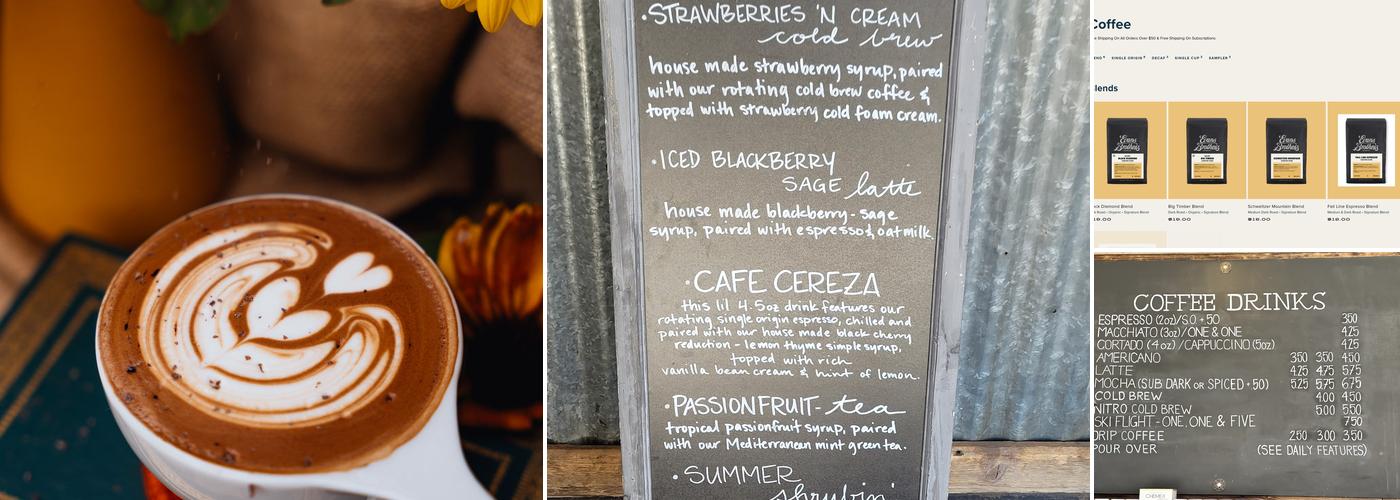 ·STRAWBERRIES 'N CREAM
cold brew
house made strawberry syrup, paired
with our rotating cold brew coffee &
topped with strawberry cold foam cream.
·ICED BLACKBERRY
SAGE latte
house made blackberry-sage
syrup, paired with espresso & oat milk.
·CAFE CEREZA
this lil 4.5oz drink features our
rotating single origin espresso, chilled and
paired with our house made black cherry
reduction - lemon thyme simple syrup,
topped with rich
vanilla bean cream & hint of lemon.
·PASSIONFRUIT-tea
tropical passionfruit syrup, paired
with our Mediterranean mint green tea.
·SUMMER
shrubin'
Coffee
Shipping On All Orders Over $50 & Free Shipping On Subscriptions
SINGLE ORIGIN DECAF SINGLE CUP SAMPLER
lends
Evans Brothers Evans Brothers Evans Brothers Evans Brothers
Diamond Blend Big Timber Blend Schweitzer Mountain Blend Fall Line Espresso Blend
Roast - Organic - Signature Blend Dark Roast - Organic - Signature Blend Medium Dark Roast - Signature Blend Medium & Dark Roast - Signature Blend
$18.00 $18.00 $18.00
COFFEE DRINKS
ESPRESSO (2oz)/S.O +.50 350
MACCHIATO (3oz)/ONE & ONE 425
CORTADO (4oz)/CAPPUCCINO (5oz) 425
AMERICANO 350 350 450
LATTE 425 475 575
MOCHA (SUB DARK OR SPICED +.50) 525 575 675
COLD BREW 400 450
NITRO COLD BREW 500 550
SKI FLIGHT - ONE, ONE & FIVE 750
DRIP COFFEE 250 300 350
POUR OVER (SEE DAILY FEATURES)
CHEMEX